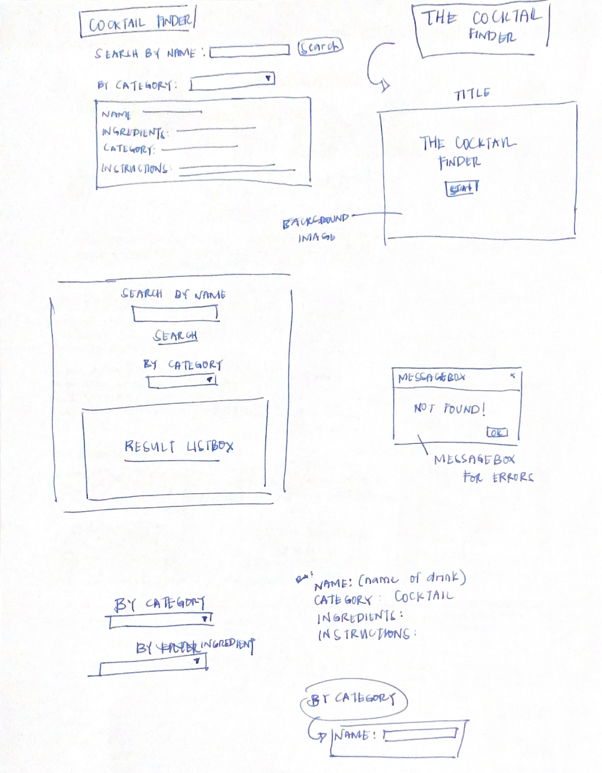 COCKTAIL FINDER
SEARCH BY NAME: Search
BY CATEGORY:
NAME
INGREDIENTS:
CATEGORY:
INSTRUCTIONS:
THE COCKTAIL
FINDER
TITLE
THE COCKTAIL
FINDER
START
BACKGROUND
IMAGE
SEARCH BY NAME
SEARCH
BY CATEGORY
RESULT LISTBOX
MESSAGEBOX x
NOT FOUND!
OK
MESSAGEBOX
FOR ERRORS
BY CATEGORY
BY INGREDIENT
NAME: (name of drink)
CATEGORY: COCKTAIL
INGREDIENTS:
INSTRUCTIONS:
BY CATEGORY
NAME: